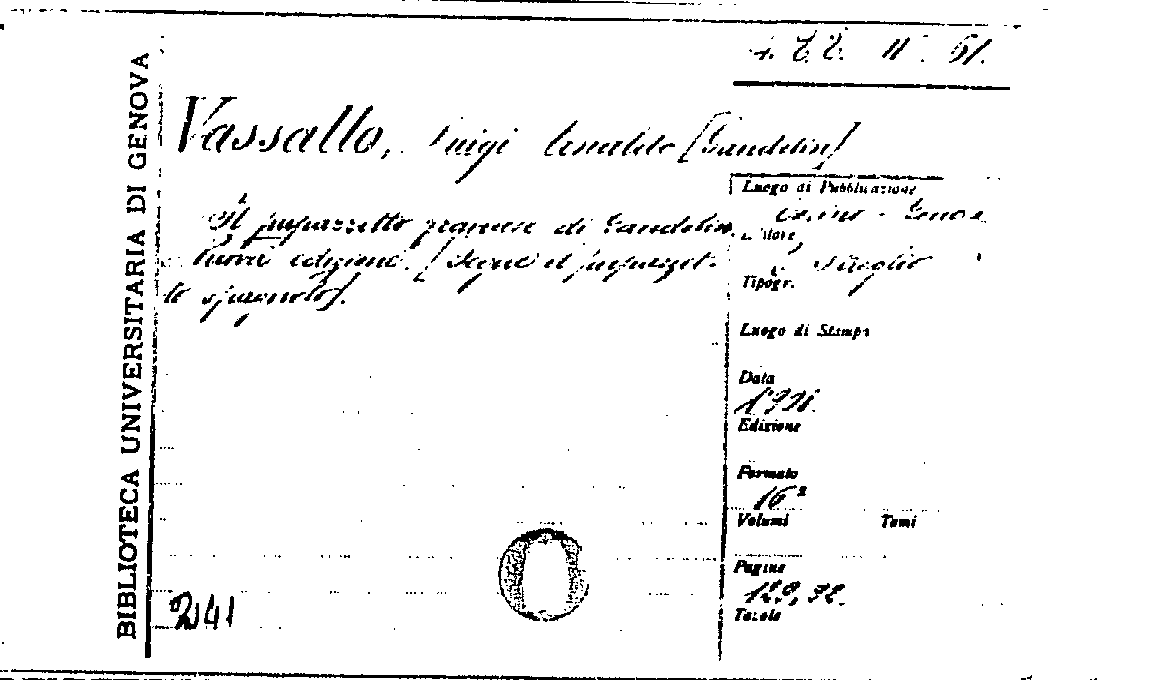 BIBLIOTECA UNIVERSITARIA DI GENOVA
61.
Vassallo, Luigi Arnaldo [Gandolin]
Il pupazzetto di Gandolin.
Nuova edizione. [Segue il pupazzet-
to spagnolo].
Luogo di Pubblicazione
Torino - Genova
Editore
Streglio
Tipogr.
Luogo di Stampa
Data
Edizione
Formato
16°
Volumi Tomi
Pagine
129, 32.
Tavole
2141